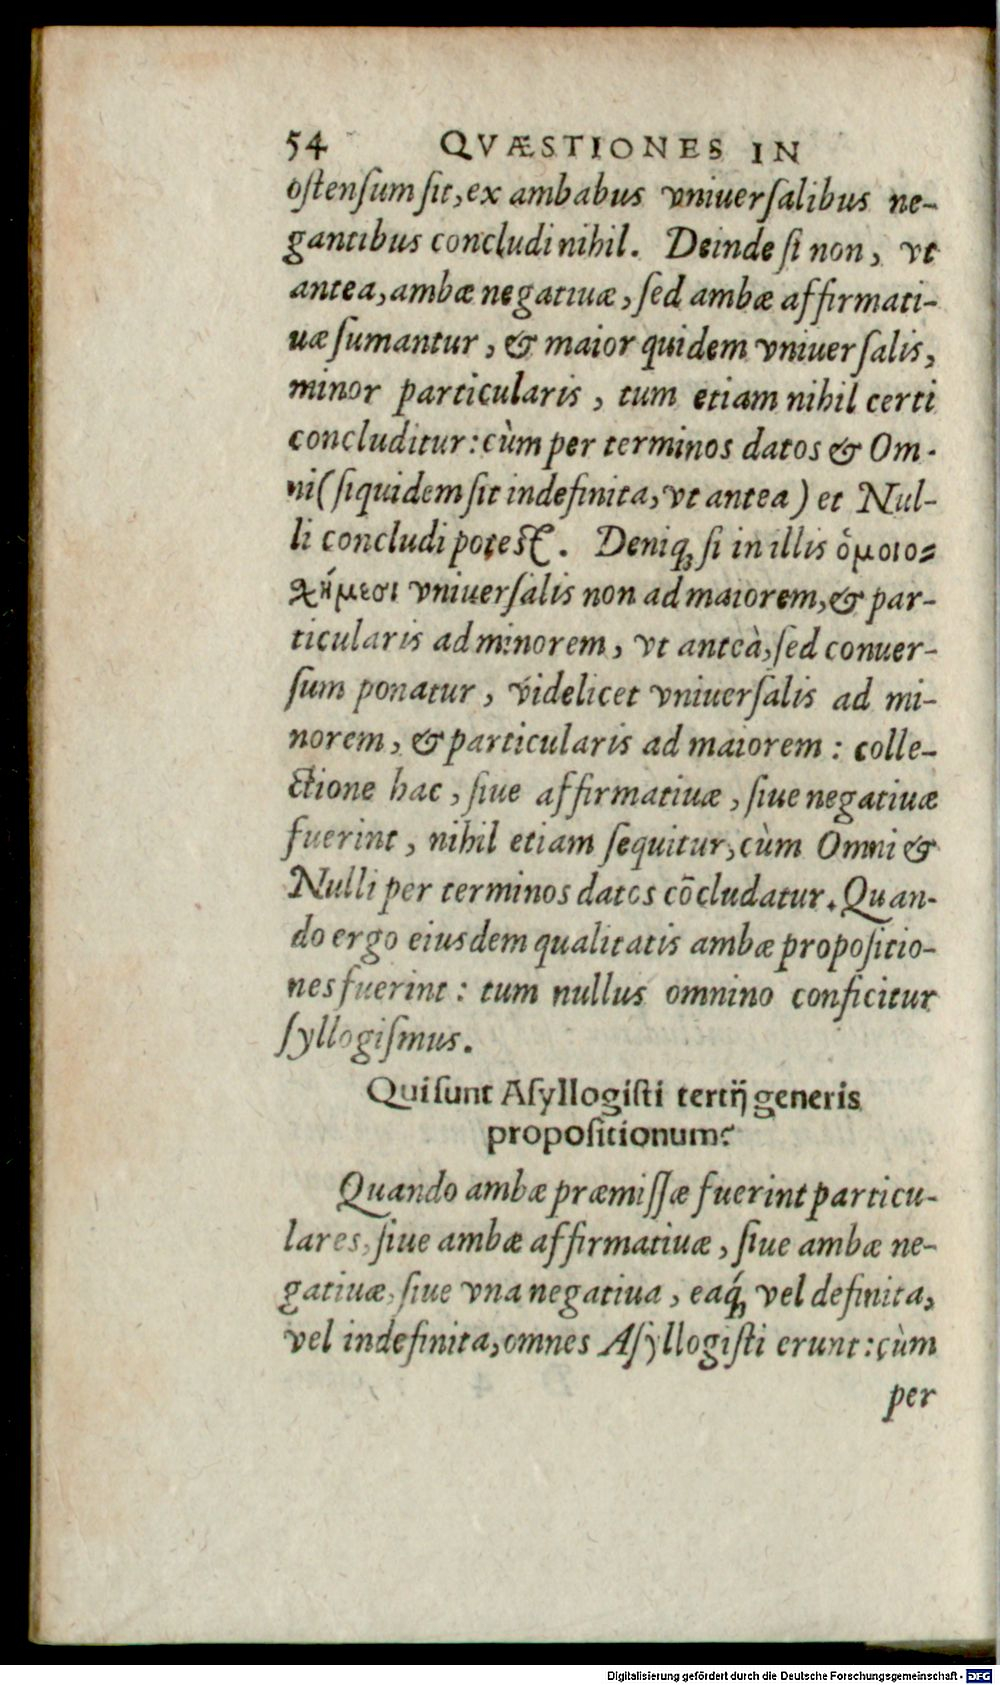 54 QVÆSTIONES IN
oſtenſum ſit, ex ambabus vniuerſalibus ne-
gantibus concludi nihil. Deinde ſi non, vt
antea, ambæ negatiuæ, ſed ambæ affirmati-
uæ ſumantur, & maior quidem vniuerſalis,
minor particularis, tum etiam nihil certi
concluditur: cùm per terminos datos & Om-
ni (ſiquidem ſit indefinita, vt antea) et Nul-
li concludi poteſt. Deniq; ſi in illis ὁμοιο-
χήμεσι vniuerſalis non ad maiorem, & par-
ticularis ad minorem, vt anteà, ſed conuer-
ſum ponatur, videlicet vniuerſalis ad mi-
norem, & particularis ad maiorem: colle-
ctione hac, ſiue affirmatiuæ, ſiue negatiuæ
fuerint, nihil etiam ſequitur, cùm Omni &
Nulli per terminos datos cōcludatur. Quan-
do ergo eiusdem qualitatis ambæ propoſitio-
nes fuerint: tum nullus omnino conficitur
ſyllogiſmus.
Qui ſunt Aſyllogiſti tertij generis
propoſitionum?
Quando ambæ præmiſſæ fuerint particu-
lares, ſiue ambæ affirmatiuæ, ſiue ambæ ne-
gatiuæ, ſiue vna negatiua, eáq; vel definita,
vel indefinita, omnes Aſyllogiſti erunt: cùm
per
Digitalisierung gefördert durch die Deutsche Forschungsgemeinschaft - DFG